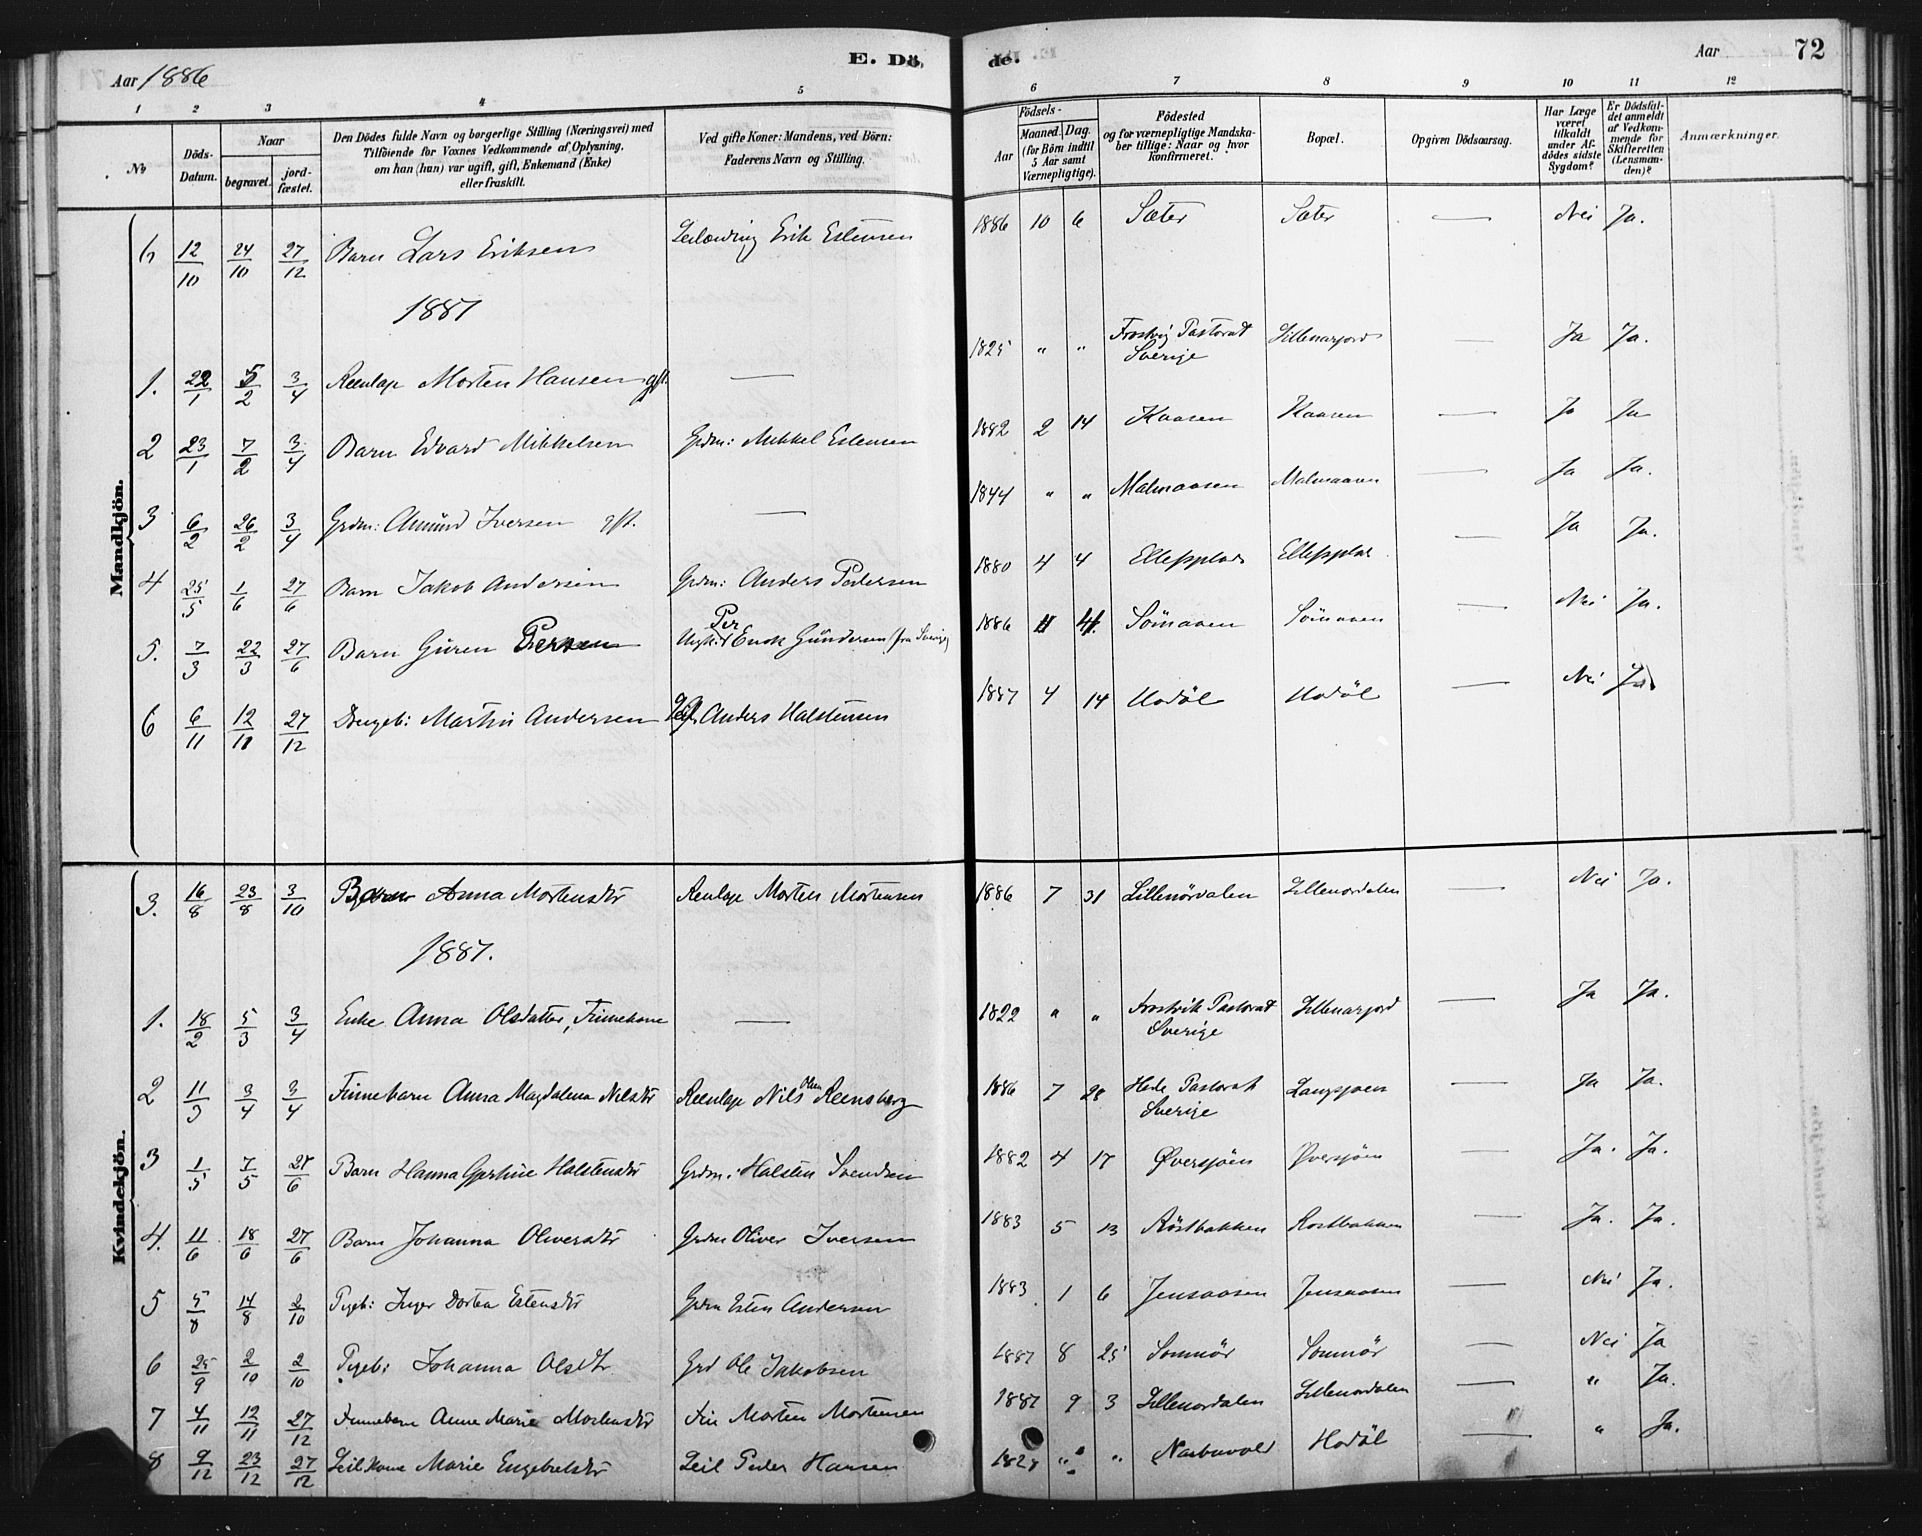 Aar 1886 E. Dö de. Aar 72
1 2 3 4 5 6 7 8 9 10 11 12
No Döds-Datum. Naar begravet. jord-fæstet. Den Dödes fulde Navn og borgerlige Stilling (Næringsvei) med Tilföiende for Voxnes Vedkommende af Oplysning, om han (hun) var ugift, gift, Enkemand (Enke) eller fraskilt. Ved gifte Koner: Mandens, ved Börn: Faderens Navn og Stilling. Födsels- Aar Maaned. Dag. (for Börn indtil 5 Aar samt Værnepligtige). Födested og for værnepligtige Mandskaber tillige: Naar og hvor konfirmeret. Bopæl. Opgiven Dödsaarsag. Har Læge været tilkaldt under Afdödes sidste Sygdom? Er Dödsfaldet anmeldt af Vedkommende for Skifteretten (Lensmanden)? Anmærkninger.
Mandkjön.
6 12/10 24/10 27/12 Barn Lars Eriksen Leilænding Erik Estensen 1886 10 6 Sæter Sæter — Nei Ja.
1887
1. 22/1 5/2 3/4 Reenlap Morten Hansen gft. — 1825 " " Frostvig Pastorat Sverige Lillenarjord — Ja Ja.
2 23/1 7/2 3/4 Barn Edvard Mikkelsen Grdm: Mikkel Estensen 1882 2 14 Kaasen Kaasen — Ja Ja
3 6/2 26/2 3/4 Grdm: Amund Iversen gft. — 1844 " " Malmaasen Malmaasen — Ja Ja.
4 25/5 1/6 27/6 Barn Jakob Andersen Grdm: Anders Pedersen 1880 4 4 Ellefsplads Ellefsplads — Ja Ja.
5. 7/3 22/3 27/6 Barn Guren Persen Ungk: Per Gundersen (fra Sverige) 1886 11 4. Sömaaen Sömaaen — Nei Ja.
6 6/11 12/11 27/12 Drengeb: Martin Andersen Anders Halstensen 1887 4 14 Hodöl Hodöl — Nei Ja
Kvindekjön.
3. 16/8 23/8 3/10 Barn Anna Mortensdtr Reenlap Morten Mortensen 1886 7 31 Lillenördalen Lillenordalen — Nei Ja.
1887.
1. 18/2 5/3 3/4 Enke Anna Olsdatter, Finnekone — 1822 " " Frostvik Pastorat Sverige Lillenarjord — Ja Ja.
2 11/3 3/4 3/4 Finnebarn Anna Magdalena Nilsdtr Reenlap Nils Olsen Reensberg 1886 7 28 Hede Pastorat Sverige Langsjoen — Ja Ja.
3 1/5 7/5 27/6 Barn Hanna Gjertine Halstensdtr Grdm: Halsten Svendsen 1882 4 17 Øversjöen Øversjöen — Ja. Ja.
4. 11/6 18/6 27/6 Barn Johanna Oliversdtr Grdm Oliver Iversen 1883 5 13 Röstbakken Rostbakken — Ja. Ja.
5 5/8 14/8 2/10 Pigeb: Inger Dortea Estensdtr Grdm Esten Andersen 1883 1 6 Jensaasen Jensaasen — Nei Ja.
6 25/9 2/10 2/10 Pigeb: Johanna Olsdtr Grd Ole Jakobsen 1887 8 25 Somnör Somnör — Nei Ja
7 4/11 12/11 27/12 Finnebarn Anne Marie Mortensdtr Fin Morten Mortensen 1887 9 3 Lillenordalen Lillenordalen — " Ja.
8 9/12 23/12 27/12 Leil Kone Marie Engebretsdtr Leil Peder Hansen " " Narbuvold Hodöl — " Ja.